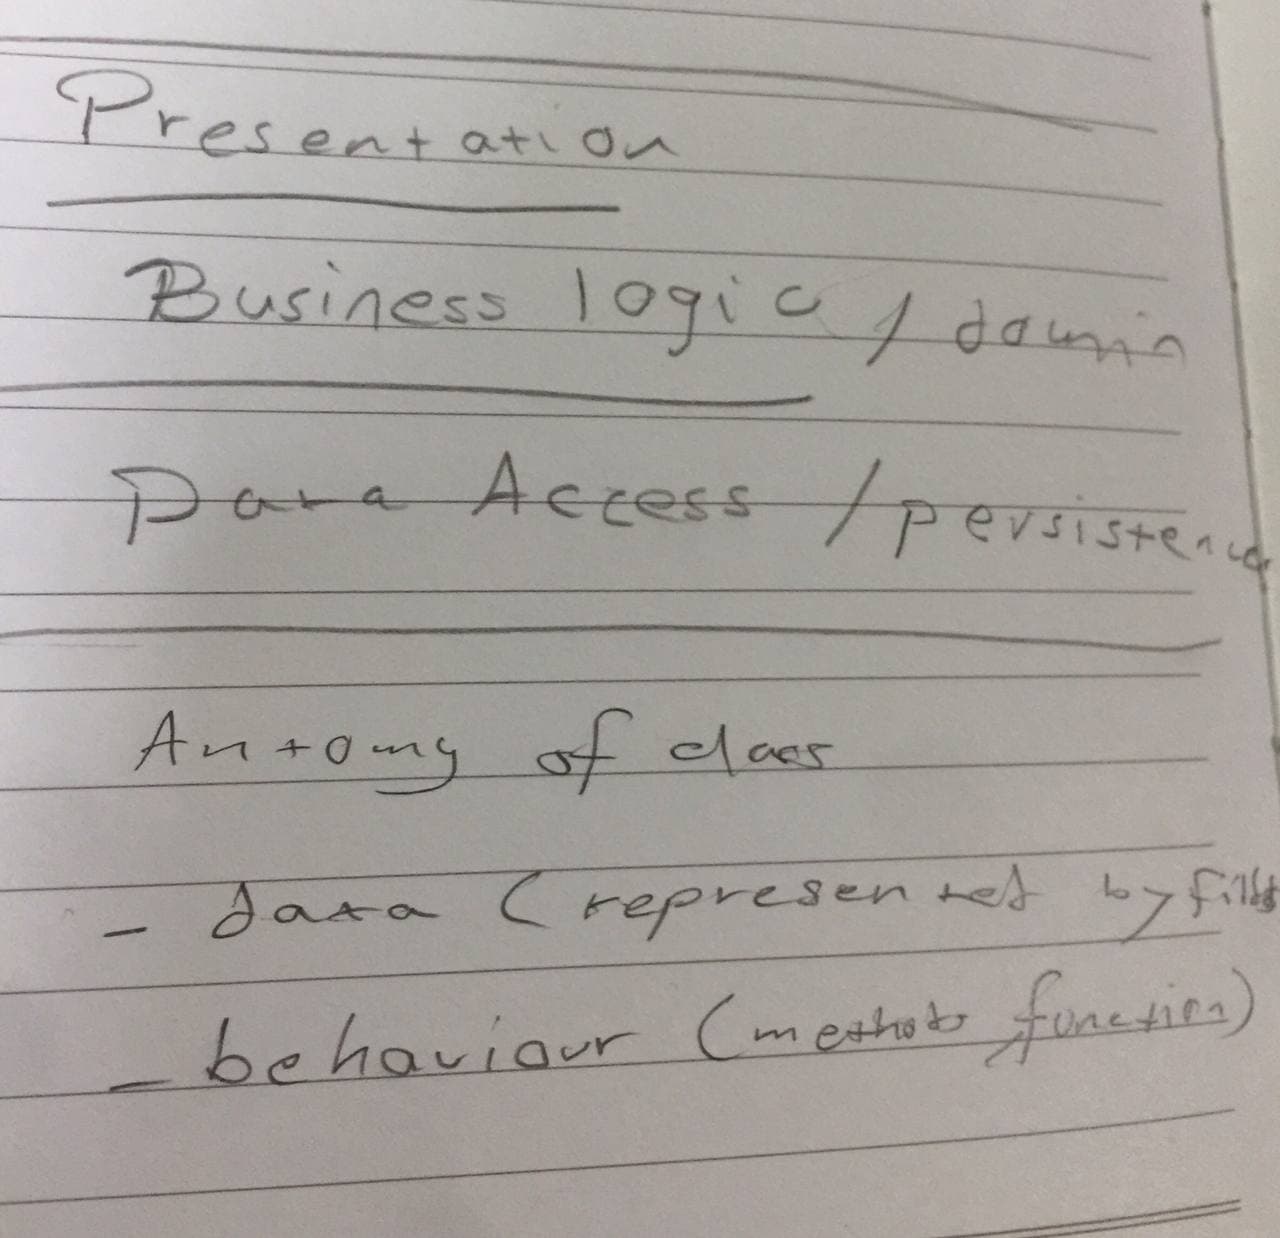 Presentation
Business logic / domin
Data Access / persistence
Antomy of class
- data (represented by filds
- behaviour (methods function)